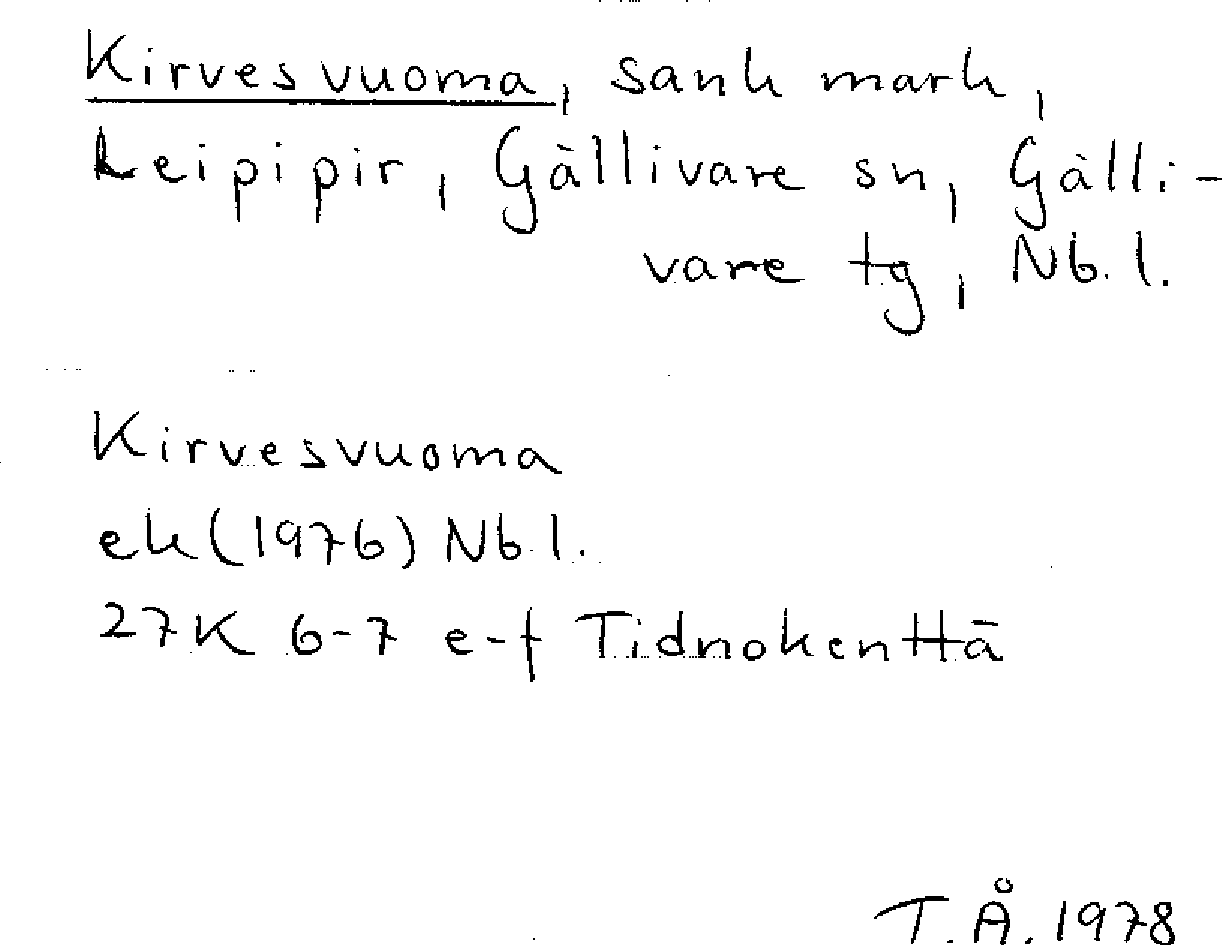 Kirvesvuoma, sank mark,
Leipipir, Gällivare sn, Gälli-
vare tg, Nb.l.
Kirvesvuoma
ek (1976) Nb.l.
27K 6-7 e-f Tidnokenttä
T.Å. 1978